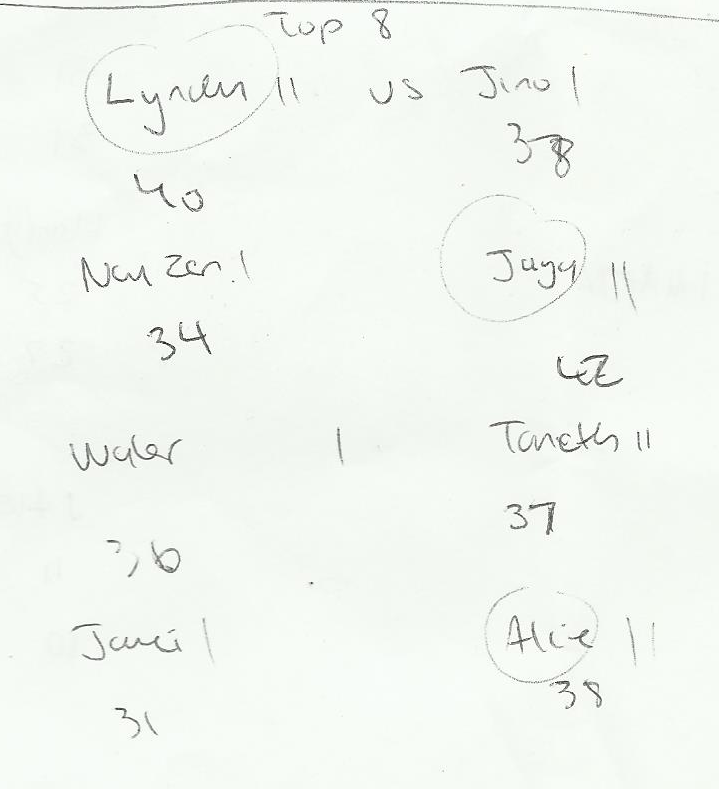 Top 8
Lynden 11 vs Jino 1
40 38
Nau Zen 1 Jugy 11
34 42
Waler 1 Taneth 11
36 37
1 Alie 11
31 38